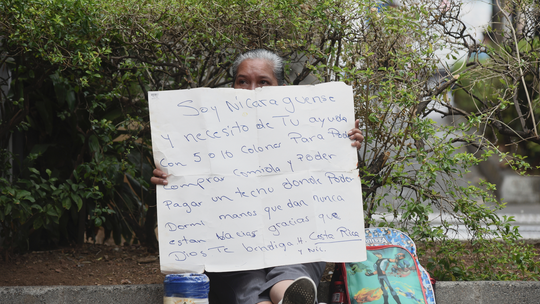 Soy Nicaraguense
y necesito de Tu ayuda
Con 5 o 10 Colones Para Poder
Comprar Comida y Poder
Pagar un techo donde Poder
Dormi manos que dan nunca
estan bacias gracias que
Dios Te bendiga # Costa Rica